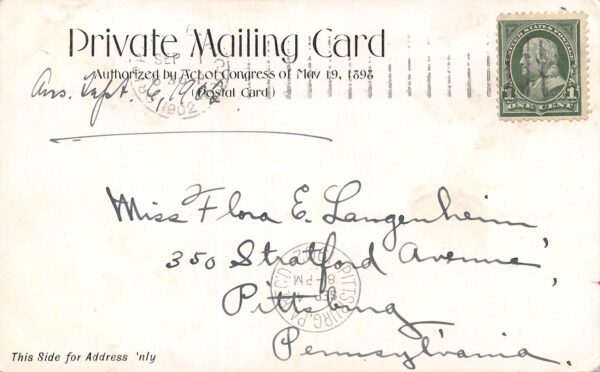 Private Mailing Card
Authorized by Act of Congress of May 19, 1898
(Postal Card)
SEP
1902
Ans. Sept. 6, 1902
UNITED STATES POSTAGE
1 1
ONE CENT
Miss Flora E. Langenheim
350 Stratford Avenue,
Pittsburg
Pennsylvania.
PITTSBURG, PA.
REC'D.
SEP
8-PM
This Side for Address 'nly